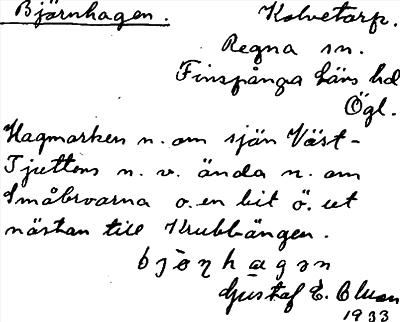 Björnhagen. Kolvetorp.
Regna sn.
Finspånga läns hd
Ögl.
Hagmarken n. om sjön Väst-
Tjuttens n. v. ända n. om
Småbroarna o. en bit ö. ut
nästan till Krubbängen.
Gustaf E. Bluon
1933